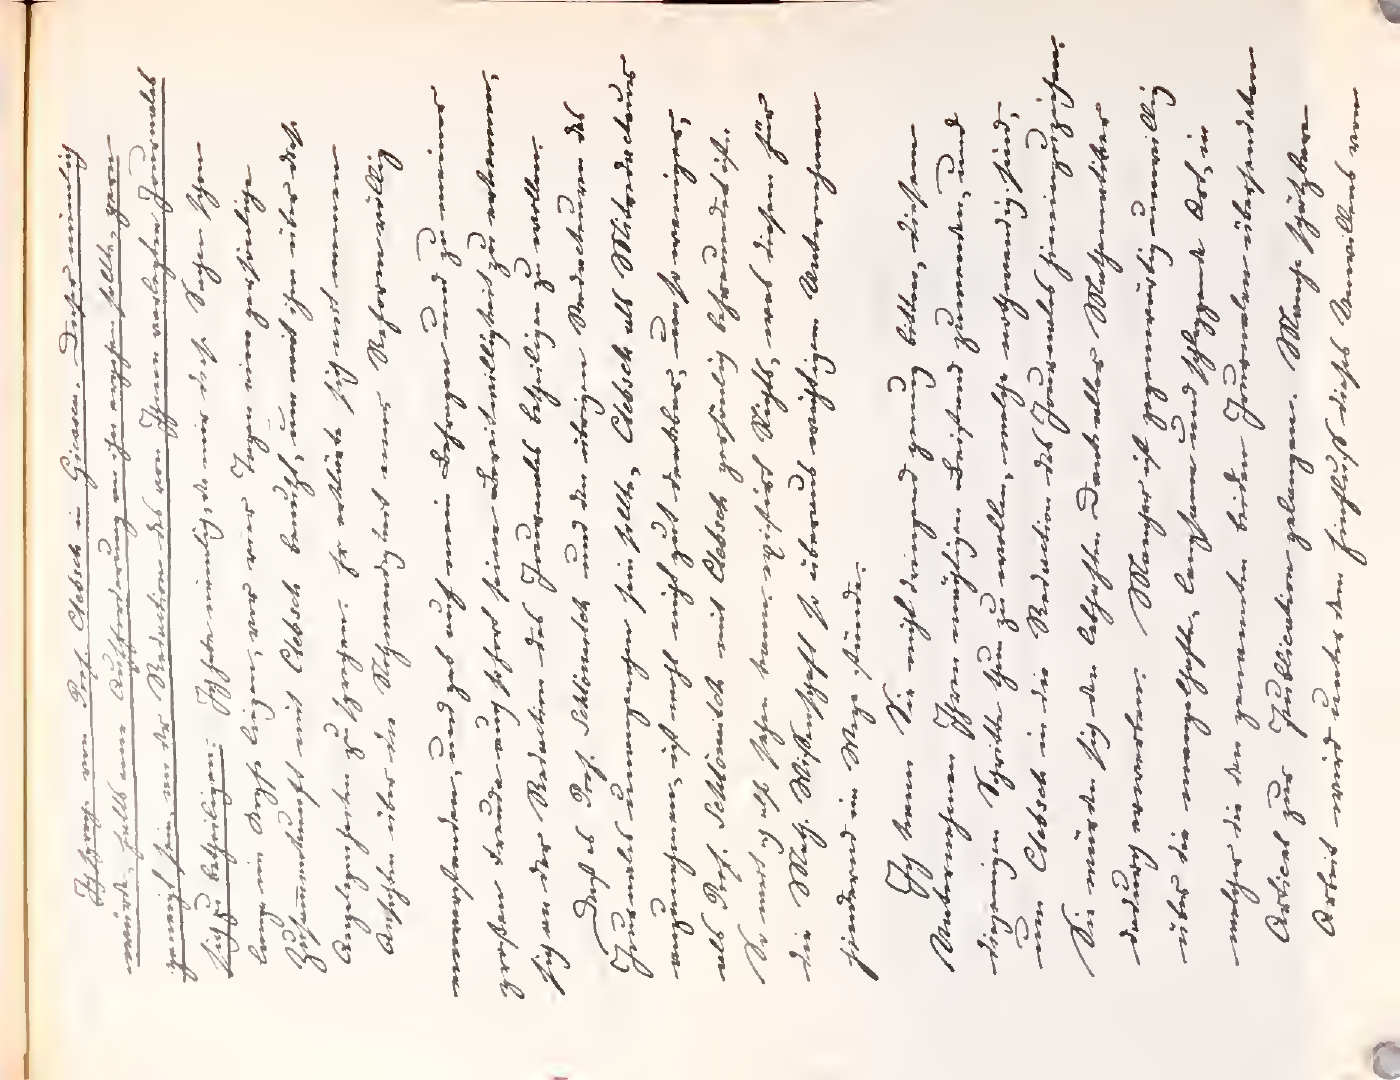 Ich sprach von Prof. Clebsch in Giessen. Dieser nämlich
würde, falls eine Aufforderung an ihn ergehen sollte, gern
geneigt sein, an der Redaction des von Ihnen verlegten Journales
sich zu betheiligen. Ich hatte nämlich, da mir diese Sache schon
lange im Kopfe liegen, vor vier Tagen eine
Zusammenkunft mit Clebsch benutzt, um mit ihm über diese
Angelegenheit zu sprechen. Er erklärte sich mit meinen
Ansichten über die Nothwendigkeit einer Reform völlig
einverstanden, und gab auf mein Befragen und zu meiner
großen Freude auch sofort seine Bereitwilligkeit zu erkennen,
sich an der Redaction des Journales betheiligen zu wollen.
Daß es Prof. Schlömilch und den übrigen Redacteuren des
Journales unangenehm sein sollte, Clebsch als Mitredacteur
anzunehmen, ist wohl nicht gut denkbar, um so weniger,
als Prof. Schlömilch mit Clebsch persönlich befreundet ist.
So viel ich also sehen kann, existirt Nichts, was diesem für
die Math. Wissenschaft so überaus wichtigen Unternehmen
hindernd im Wege stünde.
Ich kann Sie nicht dringend genug bitten, diesem
Unternehmen Ihren mächtigen Beistand zuzuwenden, und
diejenigen Schritte thun zu wollen, welche nothwendig sind,
um Clebsch in die Redaction des Journales hineinzuziehen.
Sie würden sich den lebhaften Dank aller Mathematiker
dadurch erwerben. Mancher ist gegenwärtig unwillig
über die mangelhafte, langsame und schleppende Art, in
welcher die den genannten beiden Journalen übersendeten
Artikel zur Publication gelangen. Manche schätzbare
Arbeit wird unter dem Einfluß dieses Unwillens vom